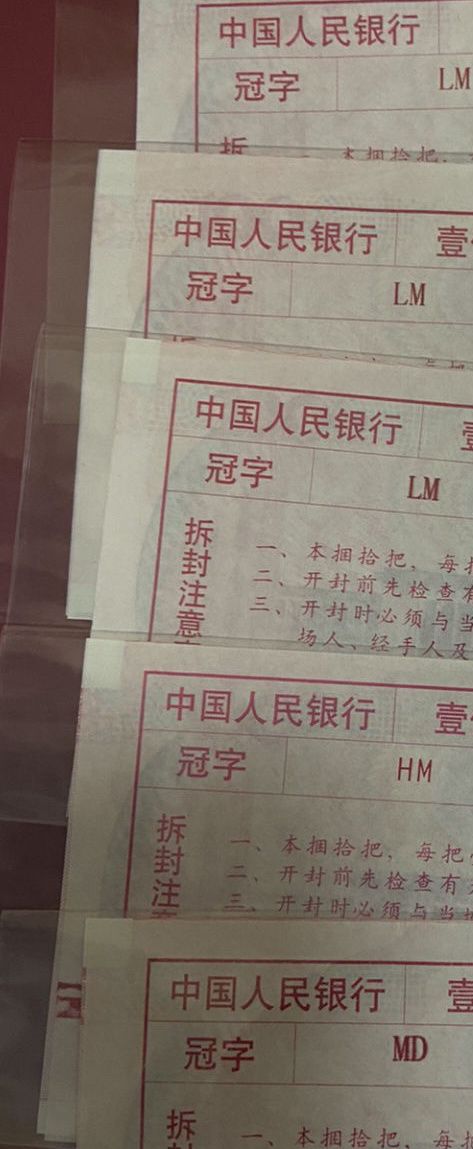 中国人民银行
冠字 LM
拆 一、本捆拾把，
中国人民银行 壹
冠字 LM
中国人民银行
冠字 LM
拆封注意
一、本捆拾把，每
二、开封前先检查有
三、开封时必须与当
场人、经手人及
中国人民银行 壹
冠字 HM
拆封注意
一、本捆拾把，每把
二、开封前先检查有
三、开封时必须与当
中国人民银行 壹
冠字 MD
拆
一、本捆拾把，每